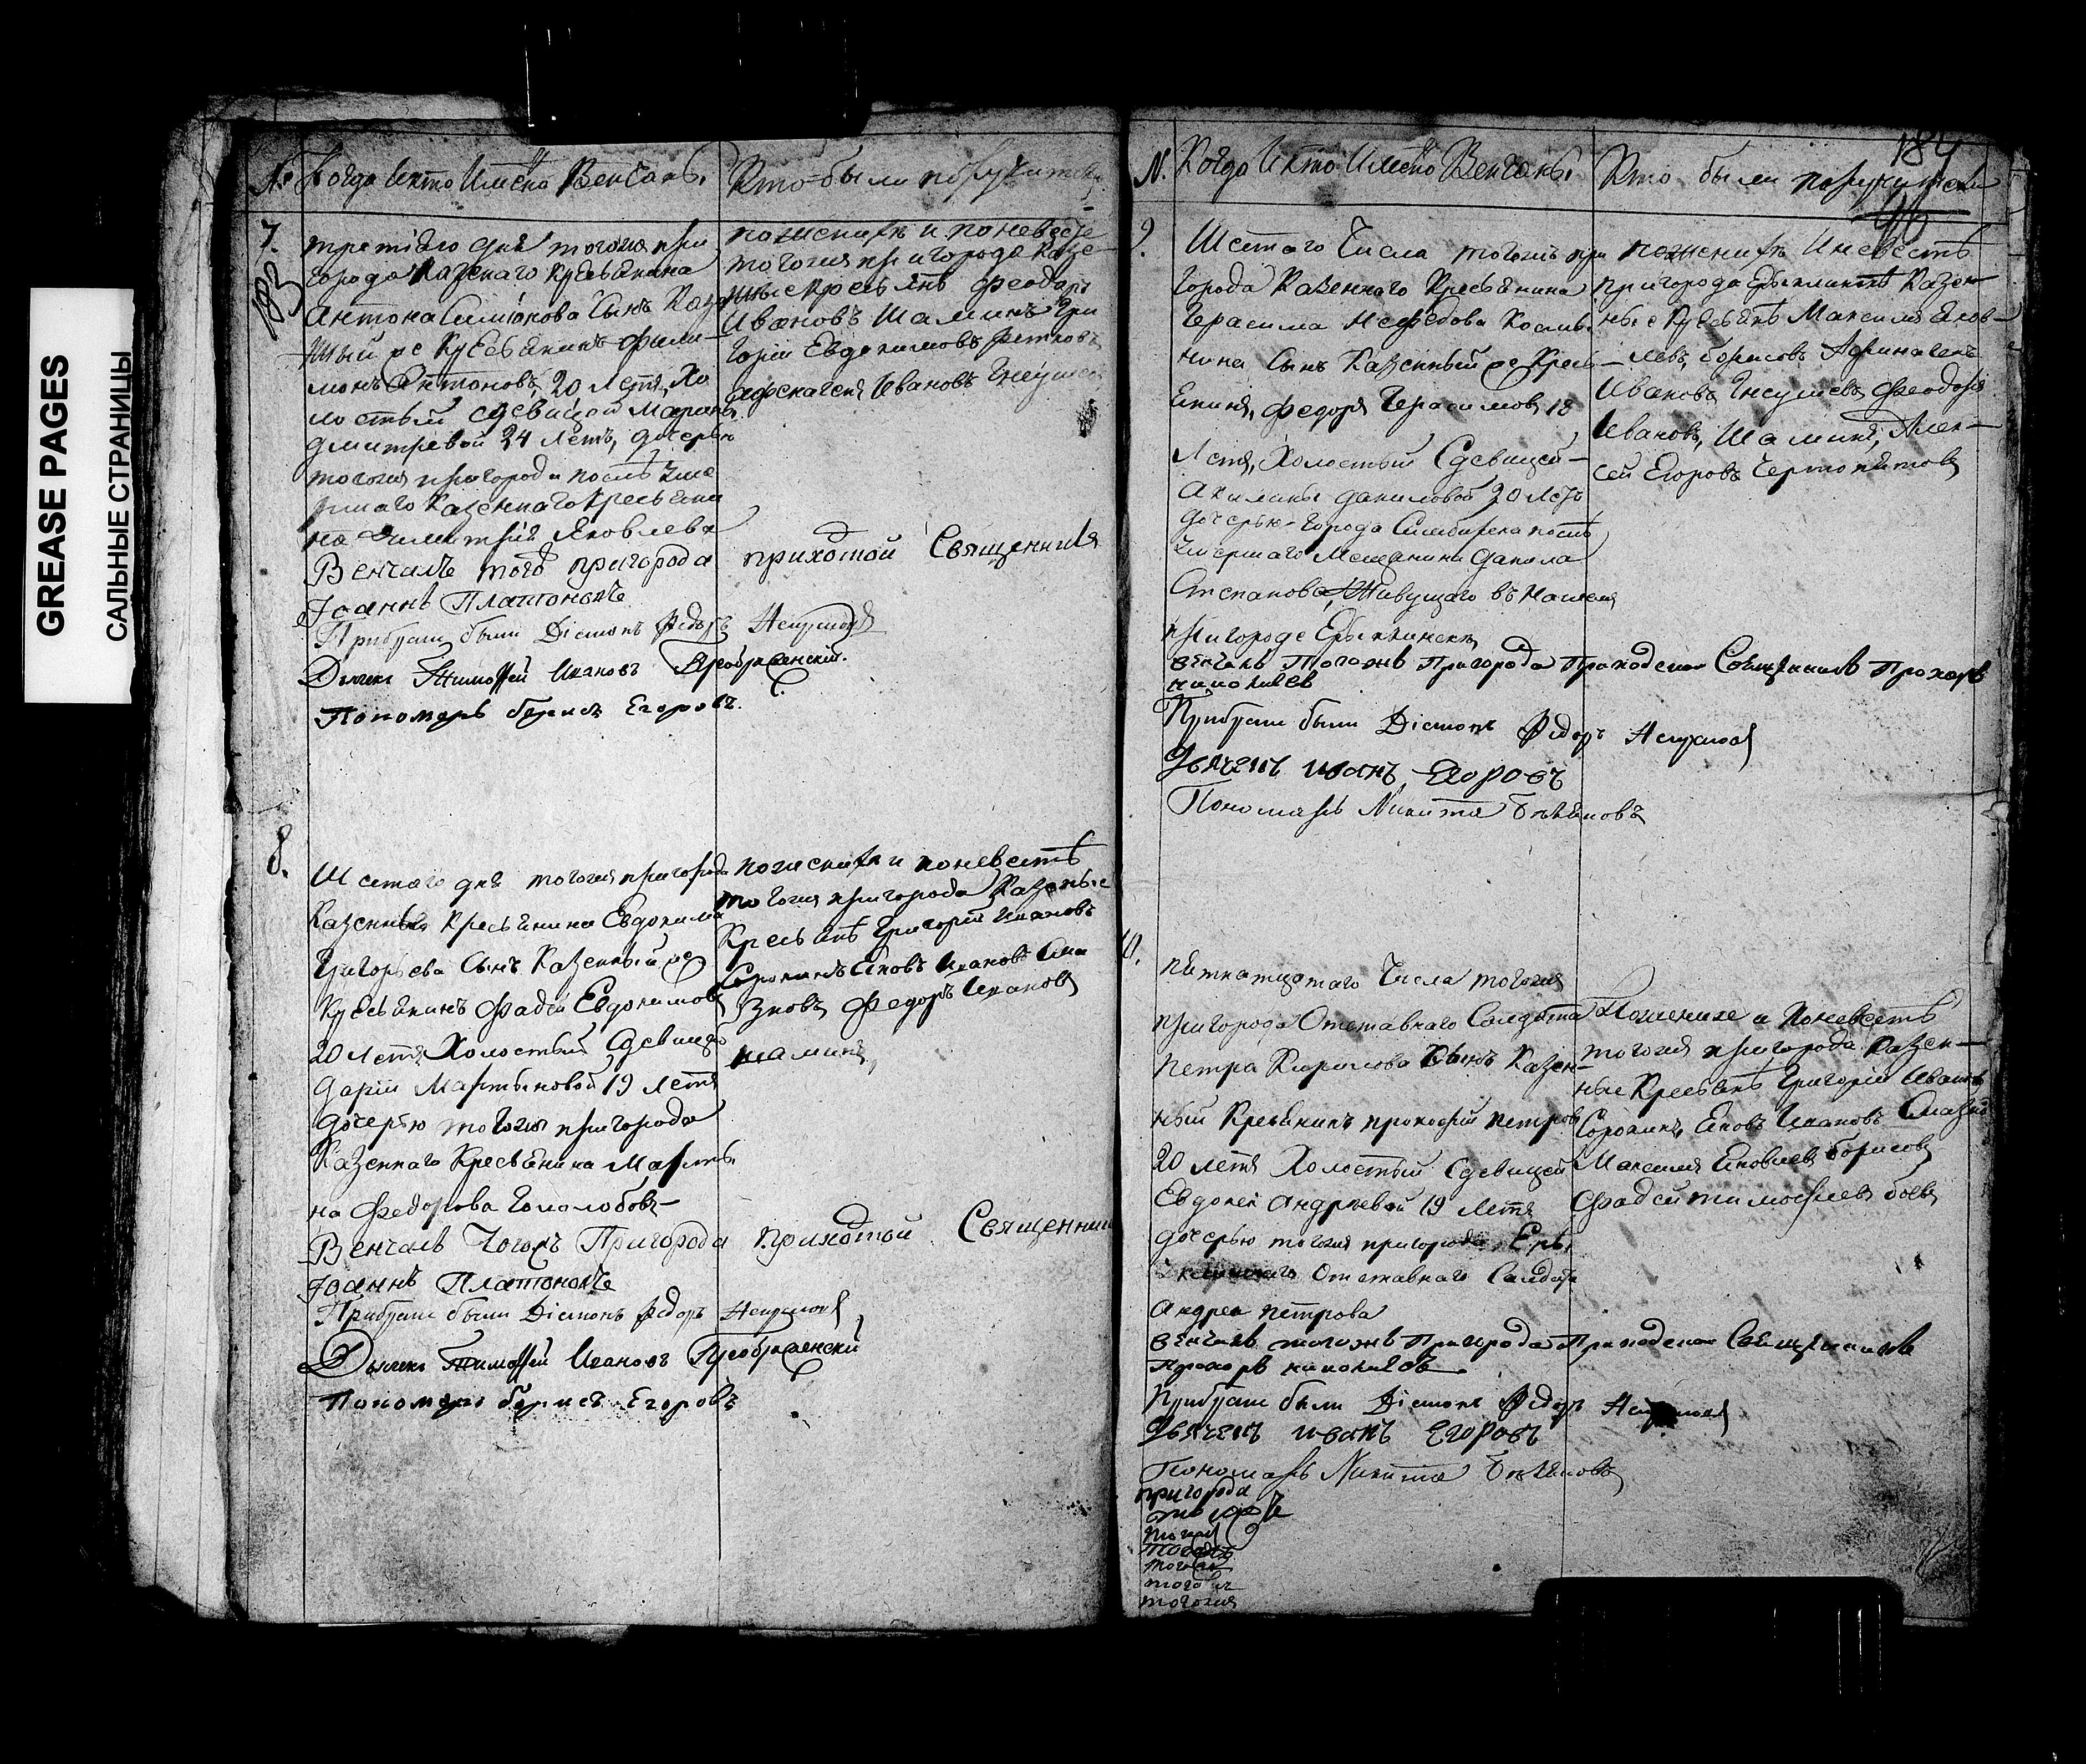 GREASE PAGES
САЛЬНЫЕ СТРАНИЦЫ
№ Когда и кто имено Венчаны.
Кто были поручители
7.
третiаго дня тогожъ при
города Казенаго Кресьянина
Антона Симiонова Сынъ Казе
нный же Кресьянинъ Фили-
монъ Антоновъ, 20 летъ, Хо
лостый сдевицей Марьи
дмитревой 24 летъ, дочерью
тогожъ пригорода послѣ уме
ршаго Казеннаго кресьяни
на Димитрiя Яковлева
Венчалъ того пригорода приходской Священникъ
Iоаннъ Платоновъ
При бракѣ были Дiаконъ Федоръ
Дьячекъ Тимофей Ивановъ Преображенскiй.
Пономарь борисъ Егоровъ.
пожениху и поневесте
тогожъ пригорода Казе
нные Кресьянѣ Феодаръ
Ивановъ Шаминъ Гри
горiй Евдокимовъ
Ивановъ
8.
Шестаго дня тогожъ пригорода
Казенныя Кресьянина Евдокима
Григорьева Сынъ Казенный же
Кресьянинъ Фадей Евдокимовъ
20 летъ Холостый Сдевицей
дарiи Мартыновой 19 летъ
дочерью тогожъ пригорода
Казеннаго Кресьянина Марты
на Федорова Гололобова
Венчалъ тогожъ Пригорода приходской Священник
Iоаннъ Платоновъ
При бракѣ были Дiаконъ Федоръ
Дьячекъ Тимофей Ивановъ Преображенскiй
Пономарь борисъ Егоровъ
пожениху и поневестѣ
тогожъ пригорода Казеные
Кресьянѣ Григорiй Ивановъ
Сорокинъ Яковъ Ивановъ Сма
зновъ Федоръ Ивановъ
шаминъ,
184
46
N. Когда и кто имено Венчаны.
Кто были поручители
9.
Шестаго Числа тогожъ при
города Казеннаго Кресьянина
Герасима Нефедова Косми
нина Сынъ Казенный же Кресь
янинъ, Федоръ Герасимовъ 18
летъ, Холостый Сдевицей
Акилины даниловой 20 летъ
дочерью города Симбирска послѣ
умершаго Мещанина данила
Степанова, Живущаго въ нашемъ
пригороде Ерыклинскѣ,
венчалъ тогожъ Пригорода Приходской Священникъ Прохоръ
николаевъ
При бракѣ были Дiаконъ Федоръ
Дьячекъ иванъ Егоровъ
Пономарь Никита
пожениху и невестѣ
пригорода Ерыклинскѣ Казен
ные Кресьянѣ Максимъ Яков-
левъ, борисовъ
Ивановъ Феодоръ
Ивановъ, Шаминъ, Алек-
сей Егоровъ Чертопятовъ
10.
пятнатцотаго Числа тогожъ
пригорода Отставнаго Салдата
Петра Кирилова Сынъ Казен-
ный Кресьянинъ прокофiй петровъ
20 летъ Холостый Сдевицей
Евдокеи Андреевой 19 летъ
дочерью тогожъ пригорода Еры
клинскаго Отставнаго Салдата
Андрея Петрова
венчалъ тогожъ Пригорода Приходской Священникъ
прохоръ николаевъ
При бракѣ были Дiаконъ Федоръ
Дьячекъ иванъ Егоровъ
Пономарь Никита
Пожениху и Поневестѣ
тогожъ пригорода Казен-
ные Кресьянѣ Григорiй Ивановъ
Сорокинъ, Яковъ Ивановъ Смазно
Максимъ Яковлевъ борисовъ
Фадей тимофеевъ боевъ
пригорода
тогожъ
тогожъ
тогожъ
тогожъ